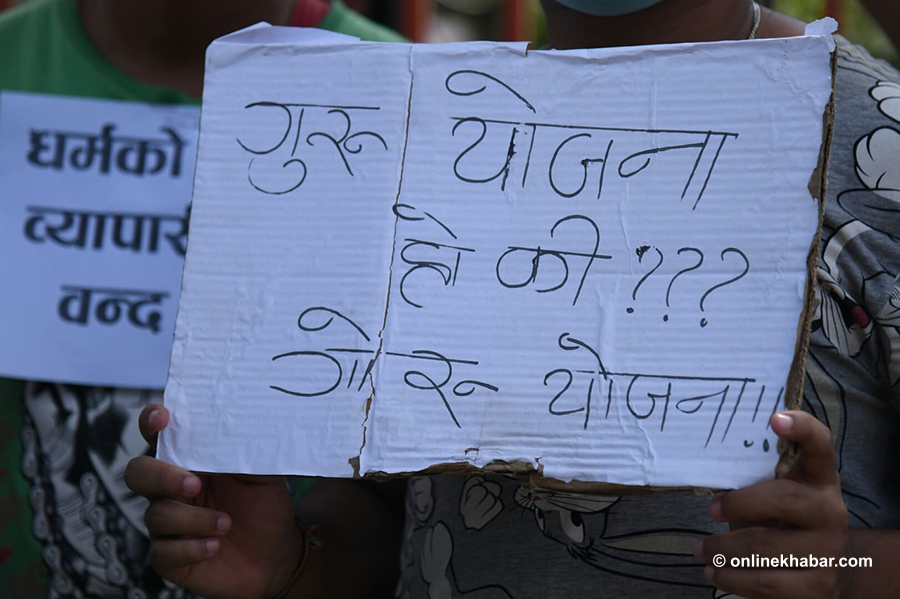 धर्मको
व्यापार
वन्द
गुरू योजना
हो की ???
गोरू योजना!!
© onlinekhabar.com